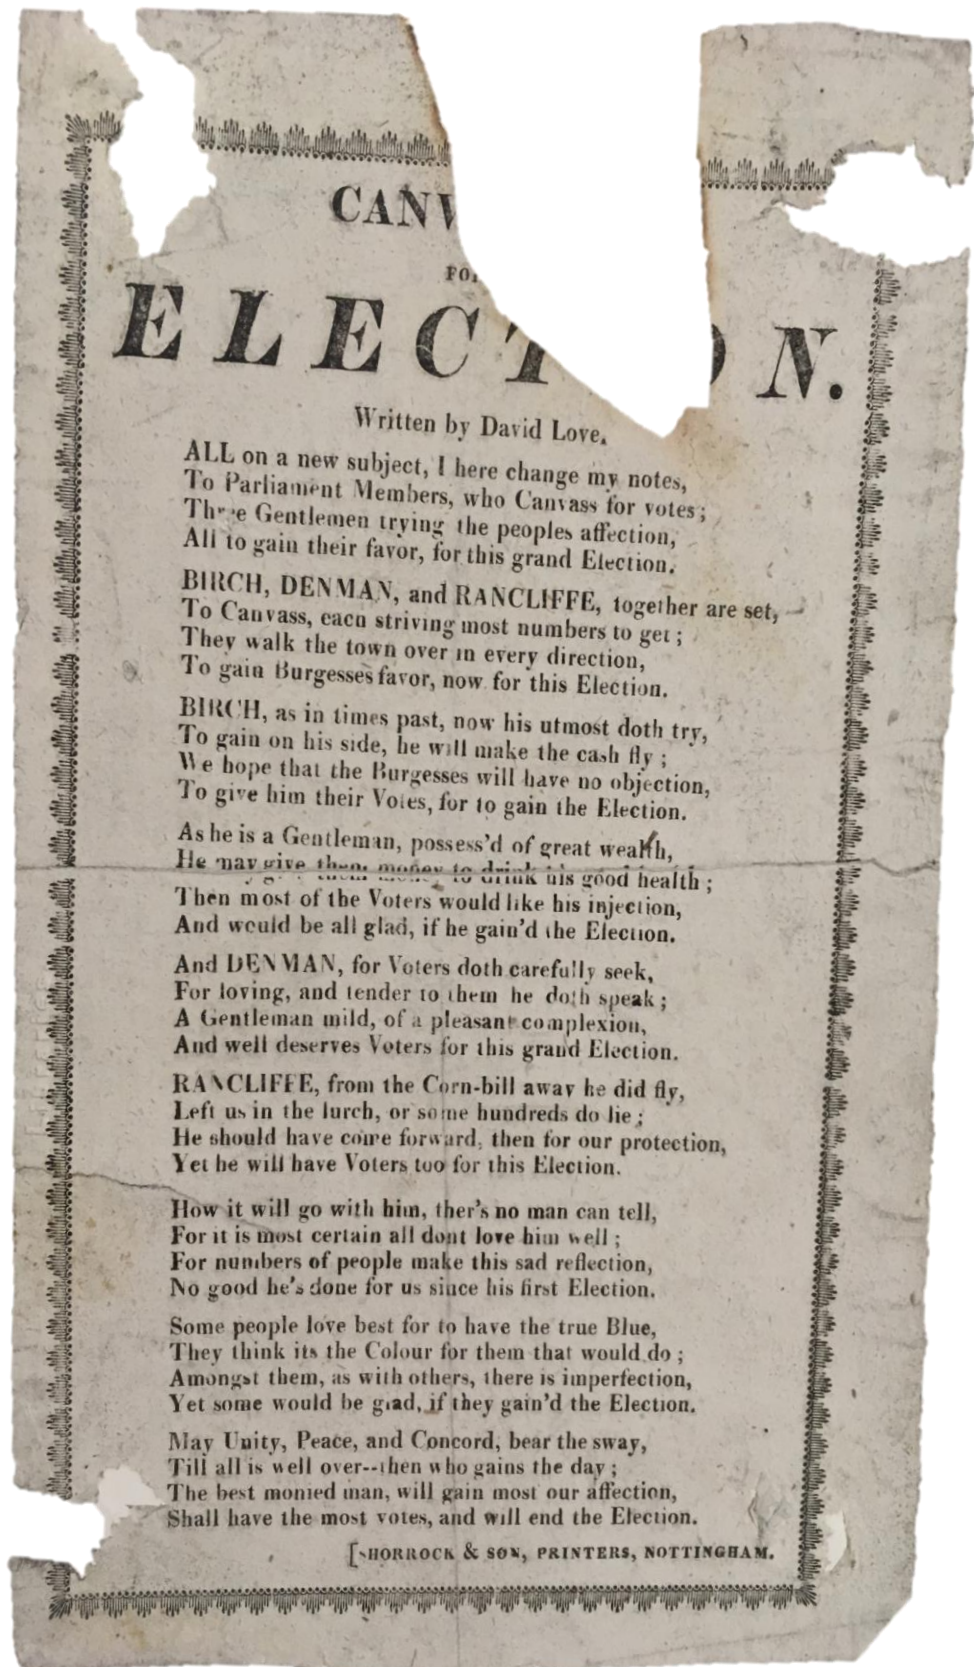 CANV
FOR
ELECTION.
Written by David Love.
ALL on a new subject, I here change my notes,
To Parliament Members, who Canvass for votes;
Three Gentlemen trying the peoples affection,
All to gain their favor, for this grand Election.
BIRCH, DENMAN, and RANCLIFFE, together are set,
To Canvass, each striving most numbers to get;
They walk the town over in every direction,
To gain Burgesses favor, now for this Election.
BIRCH, as in times past, now his utmost doth try,
To gain on his side, he will make the cash fly;
We hope that the Burgesses will have no objection,
To give him their Votes, for to gain the Election.
As he is a Gentleman, possess'd of great wealth,
He may give them money to drink his good health;
Then most of the Voters would like his injection,
And would be all glad, if he gain'd the Election.
And DENMAN, for Voters doth carefully seek,
For loving, and tender to them he doth speak;
A Gentleman mild, of a pleasant complexion,
And well deserves Voters for this grand Election.
RANCLIFFE, from the Corn-bill away he did fly,
Left us in the lurch, or some hundreds do lie;
He should have come forward, then for our protection,
Yet he will have Voters too for this Election.
How it will go with him, ther's no man can tell,
For it is most certain all dont love him well;
For numbers of people make this sad reflection,
No good he's done for us since his first Election.
Some people love best for to have the true Blue,
They think its the Colour for them that would do;
Amongst them, as with others, there is imperfection,
Yet some would be glad, if they gain'd the Election.
May Unity, Peace, and Concord, bear the sway,
Till all is well over--then who gains the day;
The best monied man, will gain most our affection,
Shall have the most votes, and will end the Election.
[SHORROCK & SON, PRINTERS, NOTTINGHAM.